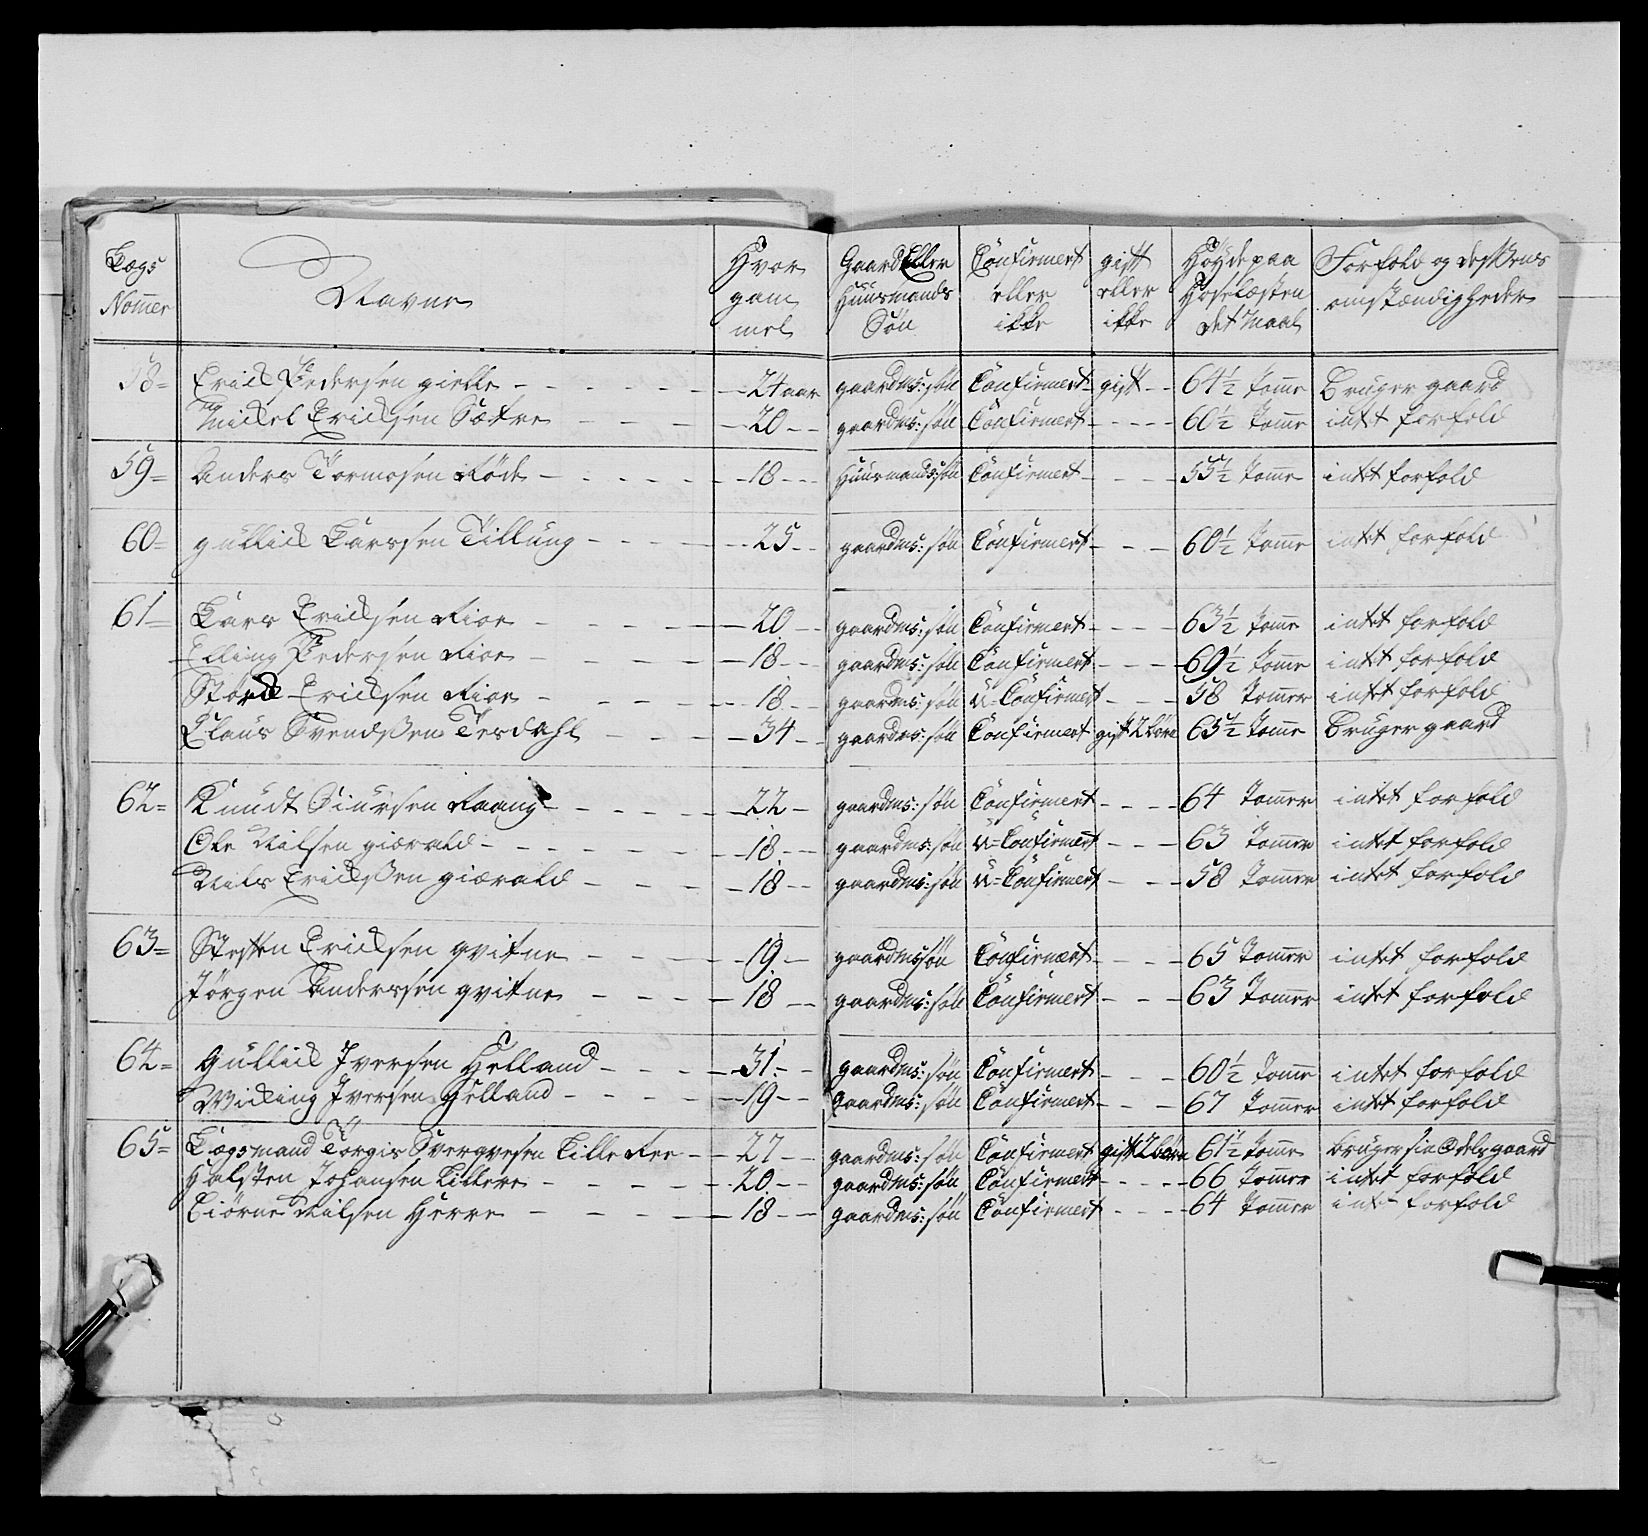 Lægs Nomer | Navne | Hvor gam mel | Gaard Eller Huusmands Søn | Confirmert eller ikke | gift eller ikke | Høyde paa Hosesæsten det Maal | Forfold og desßens omstændigheder
58= Erick Pedersen gielle - - - 24 aar gaardms: søn Confirmert gift - 64½ Tomme Bruger gaard
Mickel Ericksen Sætre - - - 20 - gaardms: søn Confirmert - - - 60½ Tomme intet forfold
59= Anders Tormosen Røde - - - 18 - Huusmands søn Confirmert - - - 55½ Tomme intet forfold
60= gullick Larssen Tillung - - - 25 - gaardms: søn Confirmert - - - 60½ Tomme intet forfold
61= Lars Ericksen Rioe - - - 20 - gaardms: søn Confirmert - - - 63½ Tomme intet forfold
Elling Pedersen Rioe - - - 18 - gaardms: søn Confirmert - - - 69½ Tomme intet forfold
Størck Ericksen Rioe - - - 18 - gaardms: søn u=Confirmert - - - 58 Tomer intet forfold
Claus Svendßen Tesdahl - - - 34 - gaardms: søn Confirmert gift 2 børn 65½ Tomme Bruger gaard
62= Knudt Siursen Raang - - - 22 - gaardms: søn Confirmert - - - 64 Tomer intet forfold
Ole Nilsen giærald - - - 18 - gaardms: søn u=Confirmert - - - 63 Tomer intet forfold
Niels Erickßen giærald - - - 18 - gaardms: søn u=Confirmert - - - 58 Tomer intet forfold
63= Steffen Ericksen qvitne - - - 19 - gaardms søn Confirmert - - - 65 Tomer intet forfold
Jørgen Anderssen qvitne - - - 18 - gaardms: søn Confirmert - - - 63 Tomer intet forfold
64= Gullick Iversen Helland - - - 31 - gaardms: søn Confirmert - - - 60½ Tomme intet forfold
Wicking Iversen Helland - - - 19 - gaardms: søn Confirmert - - - 67 Tomer intet forfold
65= Lægsmand Torgis Sverqvesen Lille Ree - - 27 - gaardms: søn Confirmert gift 2 børn 61½ Tomme bruger sin Odels gaard
Halsten Johansen Lillere - - - 20 - gaardms: søn Confirmert - - - 66 Tomer intet forfold
Biørne Nilsen Herre - - - 18 - gaardms: søn Confirmert - - - 64 Tomer intet forfold